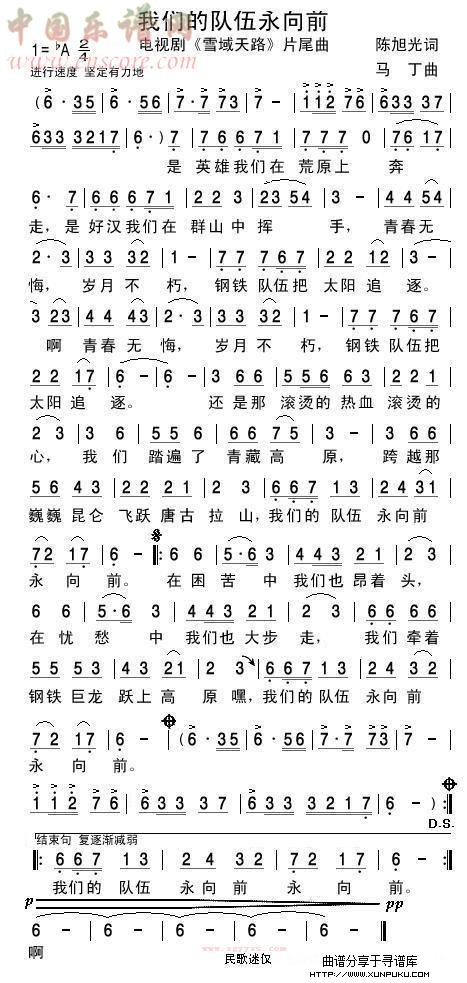 中国乐谱网
www.cnscore.com
我们的队伍永向前
1=♭A 2/4
电视剧《雪域天路》片尾曲
陈旭光词
进行速度 坚定有力地
马 丁曲
(6· 35 | 6· 56 | 7· 7 73 | 7 - | 112 76 | 633 37 |
633 3217 | 6· ) 7 | 7 6 671 | 7 7 0 | 76 17 |
是 英雄我们在 荒原上 奔
6· 7 | 66 671 | 22 3 | 23 54 | 3 - | 44 54 |
走，是 好汉我们在 群山中 挥 手， 青春无
2· 3 | 33 23 | 1 - | 77 767 | 22 12 | 3 - |
悔， 岁月 不 朽， 钢铁 队伍把 太阳 追 逐。
3 23 | 44 43 | 2· 3 | 33 23 | 1 - | 77 767 |
啊 青春 无 悔， 岁月 不 朽， 钢铁 队伍把
22 17 | 6 - | 6 - | 66 5 | 556 63 | 221 |
太阳 追 逐。 还 是 那 滚烫的 热血 滚烫的
2 3 | 3 6 | 56 3 | 66 7 | 3 - | 36 6 |
心， 我 们 踏遍 了 青藏 高 原， 跨越那
56 43 | 22 21 | 2 3 | 667 13 | 24 31 |
巍巍 昆仑 飞跃 唐古 拉 山，我们的 队伍 永向前
72 17 | 6 - |: 6 6 | 5·6 3 | 44 3 | 21 2 |
永 向 前。 在 困 苦 中 我们 也 昂着 头，
6 6 | 5·6 3 | 221 | 2 3 | 66 66 |
在 忧 愁 中 我们也 大步 走， 我们 牵着
55 53 | 43 21 | 2 3 | 667 13 | 24 32 |
钢铁 巨龙 跃上 高 原嘿，我们的 队伍 永向前
72 17 | 6 - | 6 - | (6· 35 | 6· 56 | 7·7 73 | 7 - |
永 向 前。
112 76 | 633 37 | 633 3217 | 6 - ) :|
D.S.
结束句 复逐渐减弱
|: 667 13 | 24 32 | 72 17 | 6 - :|
我们的 队伍 永向前 永 向 前。
p pp
6 - | 6 - | 6 - | 6 - ‖
啊
民歌迷仪
曲谱分享于寻谱库
HTTP://WWW.XUNPUKU.COM